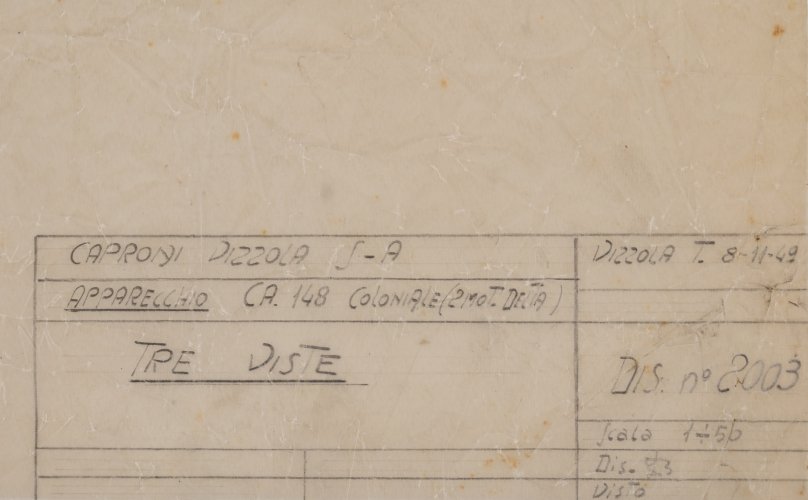 CAPRONI VIZZOLA S-A
VIZZOLA T. 8-11-49
APPARECCHIO CA. 148 COLONIALE (2 MOT. DELTA)
TRE VISTE
DIS. nº 2003
Scala 1÷50
Dis.
Visto